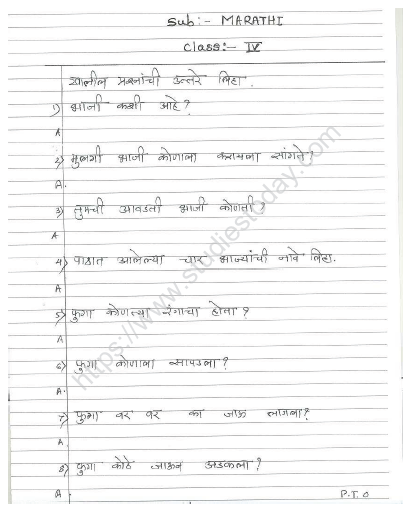 Sub:- MARATHI
Class:- IV
खालील प्रश्नांची उत्तरे लिहा.
1) भाजी कशी आहे?
A
2) मुलगी भाजी कोणाला करायला सांगते?
A.
3) तुमची आवडती भाजी कोणती?
A
4) पाठात आलेल्या चार भाज्यांची नावे लिहा.
A
5) फुगा कोणत्या रंगाचा होता?
A
6) फुगा कोणाला सापडला?
A.
7) फुगा वर वर का जाऊ लागला?
A.
8) फुगा कोठे जाऊन अडकला?
A
P.T.O
https://www.studiestoday.com